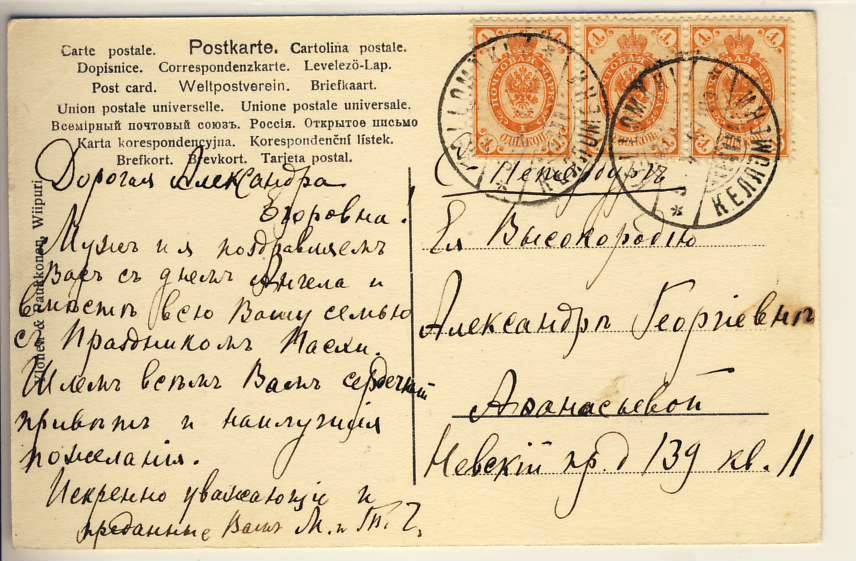 Carte postale. Postkarte. Cartolina postale.
Dopisnice. Correspondenzkarte. Levelezö-Lap.
Post card. Weltpostverein. Briefkaart.
Union postale universelle. Unione postale universale.
Всемірный почтовый союзъ. Россія. Открытое письмо
Karta korespondencyjna. Korespondenční lístek.
Brefkort. Brevkort. Tarjeta postal.
Дорогая Александра
Егоровна!
Мужъ и я поздравляемъ
Васъ съ днемъ Ангела и
вмѣстѣ всю Вашу семью
съ Праздникомъ Пасхи.
Шлемъ всѣмъ Вамъ сердечный
привѣтъ и наилучшія
пожеланія.
Искренно уважающіе и
преданные Вамъ М. и Т. Ч.
& Paukkonen, Wiipuri
С. Петербургъ
Ея Высокородію
Александрѣ Георгіевнѣ
Аѳанасьевой
Невскій пр. д 139 кв. 11
ПОЧТОВАЯ МАРКА
1
КЕЛЛОМЯКИ
KELLOMÄKI